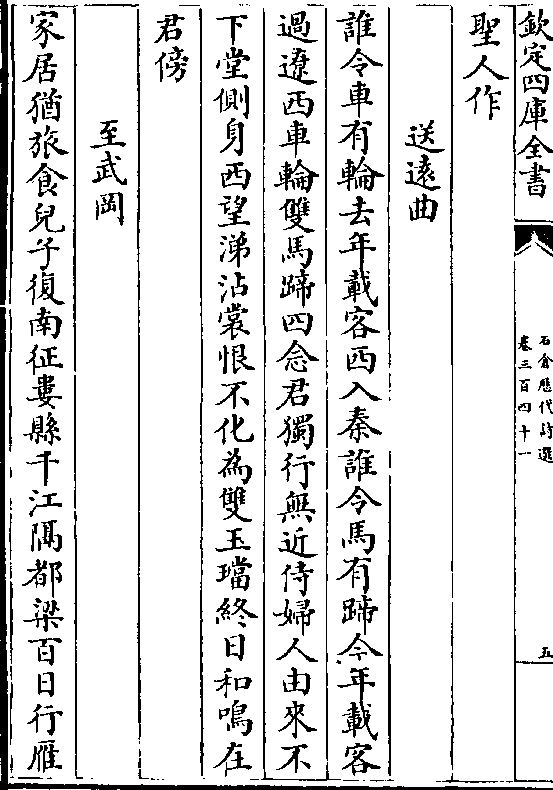 欽定四庫全書
石倉歷代詩選
卷三百四十一
五
聖人作
送遠曲
誰令車有輪去年載客西入秦誰令馬有蹄今年載客
過遼西車輪雙馬蹄四念君獨行無近侍婦人由來不
下堂側身西望涕沾裳恨不化為雙玉璫終日和鳴在
君傍
至武岡
家居猶旅食兒子復南征婁縣千江隔都梁百日行雁